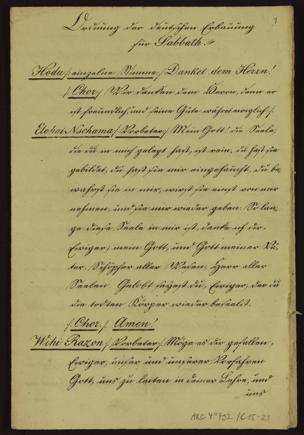 Ordnung der deutschen Erbauung
für Sabbath.
Hodu /: einzelne Stimme :/ Danket dem Herrn!
/: Chor :/ Wir danken dem Herrn, denn er
ist freundlich und seine Güte währet ewiglich /:
Elohai Nschama /: Vorbeter :/ Mein Gott! die Seele,
die du in mich gelegt hast, ist rein, du hast sie
gebildet, du hast sie mir eingehaucht, du be
wahrst sie in mir, wirst sie einst von mir
nehmen, und sie mir wieder geben. So lan
ge diese Seele in mir ist, danke ich dir,
Ewiger, mein Gott, und Gott meiner Vä
ter, Schöpfer aller Wesen, Herr aller
Seelen. Gelobt seyest du, Ewiger, der du
die todten Körper wieder beseelst.
/: Chor :/ Amen!
Wihi Razon /: Vorbeter :/ Möge es dir gefallen,
Ewiger, unser und unserer Vorfahren
Gott, uns zu leiten in deiner Lehre, und
uns
ARC 4° 792 / C 15-21